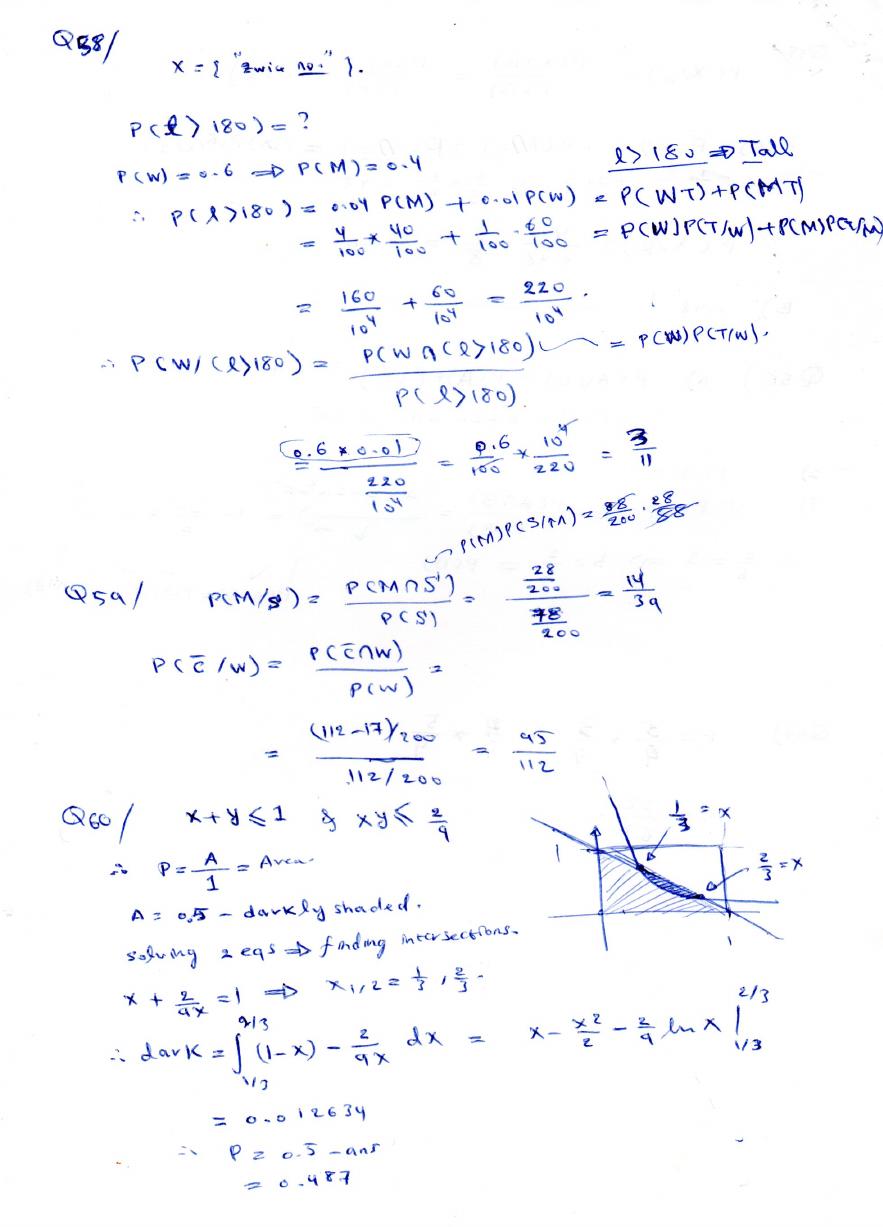 Q58/
X = { "zwice no." }.
P(ℓ > 180) = ?
P(W) = 0.6 ⇒ P(M) = 0.4
ℓ > 180 ⇒ Tall
∴ P(ℓ > 180) = 0.04 P(M) + 0.01 P(W) = P(WT) + P(MT)
= 4/100 * 40/100 + 1/100 · 60/100 = P(W)P(T/W) + P(M)P(T/M)
= 160/10⁴ + 60/10⁴ = 220/10⁴ .
∴ P(W/(ℓ>180) = P(W ∩ (ℓ>180) / P(ℓ>180) = P(W)P(T/W).
= 0.6 * 0.01 / 220/10⁴ = 0.6/100 * 10⁴/220 = 3/11
P(M)P(S/M) = 88/200 · 28/88
Q59/ P(M/S) = P(M∩S) / P(S) = 28/200 / 78/200 = 14/39
P(C̄/W) = P(C̄∩W) / P(W) =
= (112-17)/200 / 112/200 = 95/112
Q60/ x+y ≤ 1 & xy ≤ 2/9
1/3 = x
2/3 = x
1
1
∴ P = A/1 = Area
A = 0,5 - darkly shaded.
solving 2 eqs ⇒ finding intersections.
x + 2/9x = 1 ⇒ x₁,₂ = 1/3 , 2/3 .
∴ dark = ∫ 1/3 2/3 (1-x) - 2/9x dx = x - x²/2 - 2/9 ln x | 1/3 2/3
= 0.012634
∴ P = 0.5 - ans
= 0.487